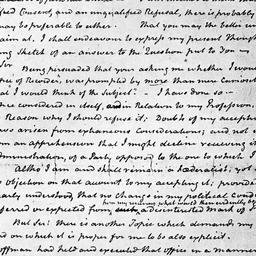 fied Consent, and an unqualified Refusal, there is probably
may be preferable to either. That you may the better un
aim at. I shall endeavour to express my present Though
ing Sketch of an answer to the Question put to You
Sir
Being persuaded that your asking me whether I would
of Recorder, was prompted by more than mere Curiosit
at I would think of the Subject. I have done so
considered in itself, and in Relation to my Profession,
Reason why I should refuse it; Doubts of my accepta
arisen from extraneous Considerations; and not
an apprehension that I might decline receiving it
dministration, of a Party opposed to the one to which I
Altho' I am and shall remain a Federalist, yet
objection on that account to my accepting it; provided
early understood that no change in my political Cond
from my receiving what would then evidently be
ferred or expected from such a disinterested Mark of
But Sir: there is another Topic which demands my
on which it is proper for me to be also explicit.
offman had held and executed that office in a manner